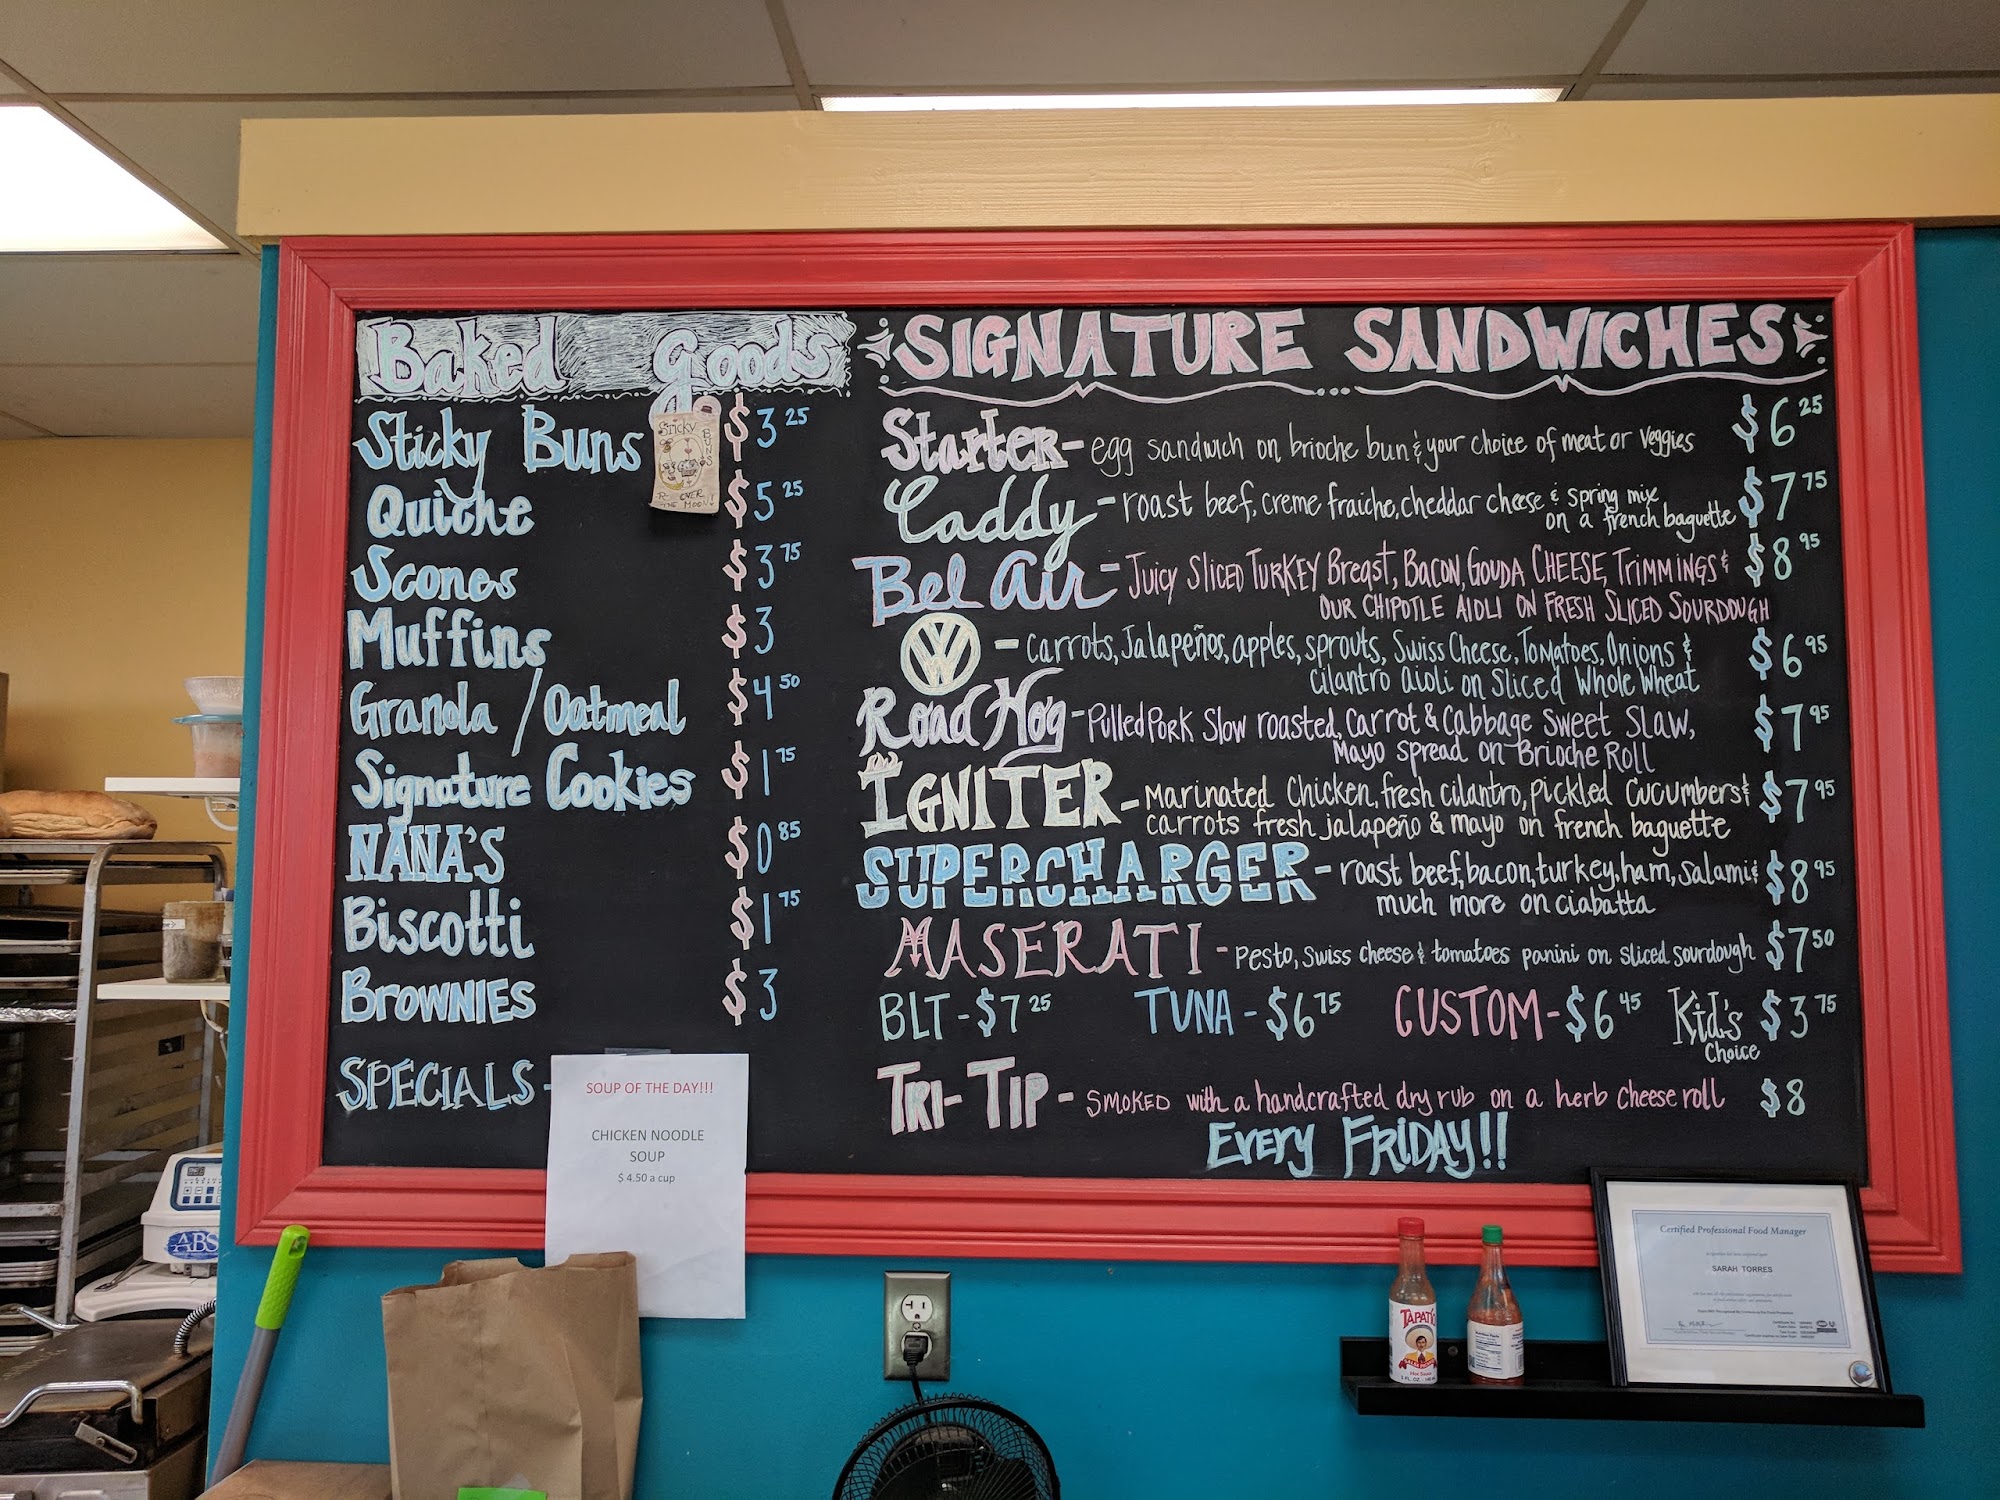 Baked Goods
Sticky Buns $3 25
Sticky
BUNS
R OVER
THE MOON!
Quiche $5 25
Scones $3 75
Muffins $3
Granola / Oatmeal $4 50
Signature Cookies $1 75
NANA'S $0 85
Biscotti $1 75
BROWNIES $3
SPECIALS-
SOUP OF THE DAY!!!
CHICKEN NOODLE
SOUP
$ 4.50 a cup
SIGNATURE SANDWICHES
Starter- egg sandwich on brioche bun & your choice of meat or veggies $6 25
Caddy- roast beef, creme fraiche, cheddar cheese & spring mix $7 75
on a french baguette
Bel Air- JUICY SLICED TURKEY Breast, BACON, GOUDA CHEESE, TRIMMINGS & $8 95
OUR CHIPOTLE AIOLI ON FRESH SLICED SOURDOUGH
VW - carrots, Jalapeños, apples, sprouts, Swiss Cheese, Tomatoes, Onions & $6 95
cilantro aioli on Sliced Whole Wheat
Road Hog- Pulled Pork Slow roasted, Carrot & Cabbage Sweet Slaw, $7 95
Mayo spread on Brioche Roll
IGNITER- Marinated Chicken, fresh cilantro, pickled cucumbers & $7 95
carrots fresh jalapeño & mayo on french baguette
SUPERCHARGER- roast beef, bacon, turkey, ham, salami & $8 95
much more on ciabatta
MASERATI - Pesto, Swiss cheese & tomatoes panini on sliced sourdough $7 50
BLT-$7 25 TUNA-$6 75 CUSTOM-$6 45 Kid's $3 75
Choice
TRI-TIP- SMOKED with a handcrafted dry rub on a herb cheese roll $8
EVERY FRIDAY!!
Certified Professional Food Manager
SARAH TORRES
TAPATIO
SALSA PICANTE
Hot Sauce
Nutrition Facts
ABS